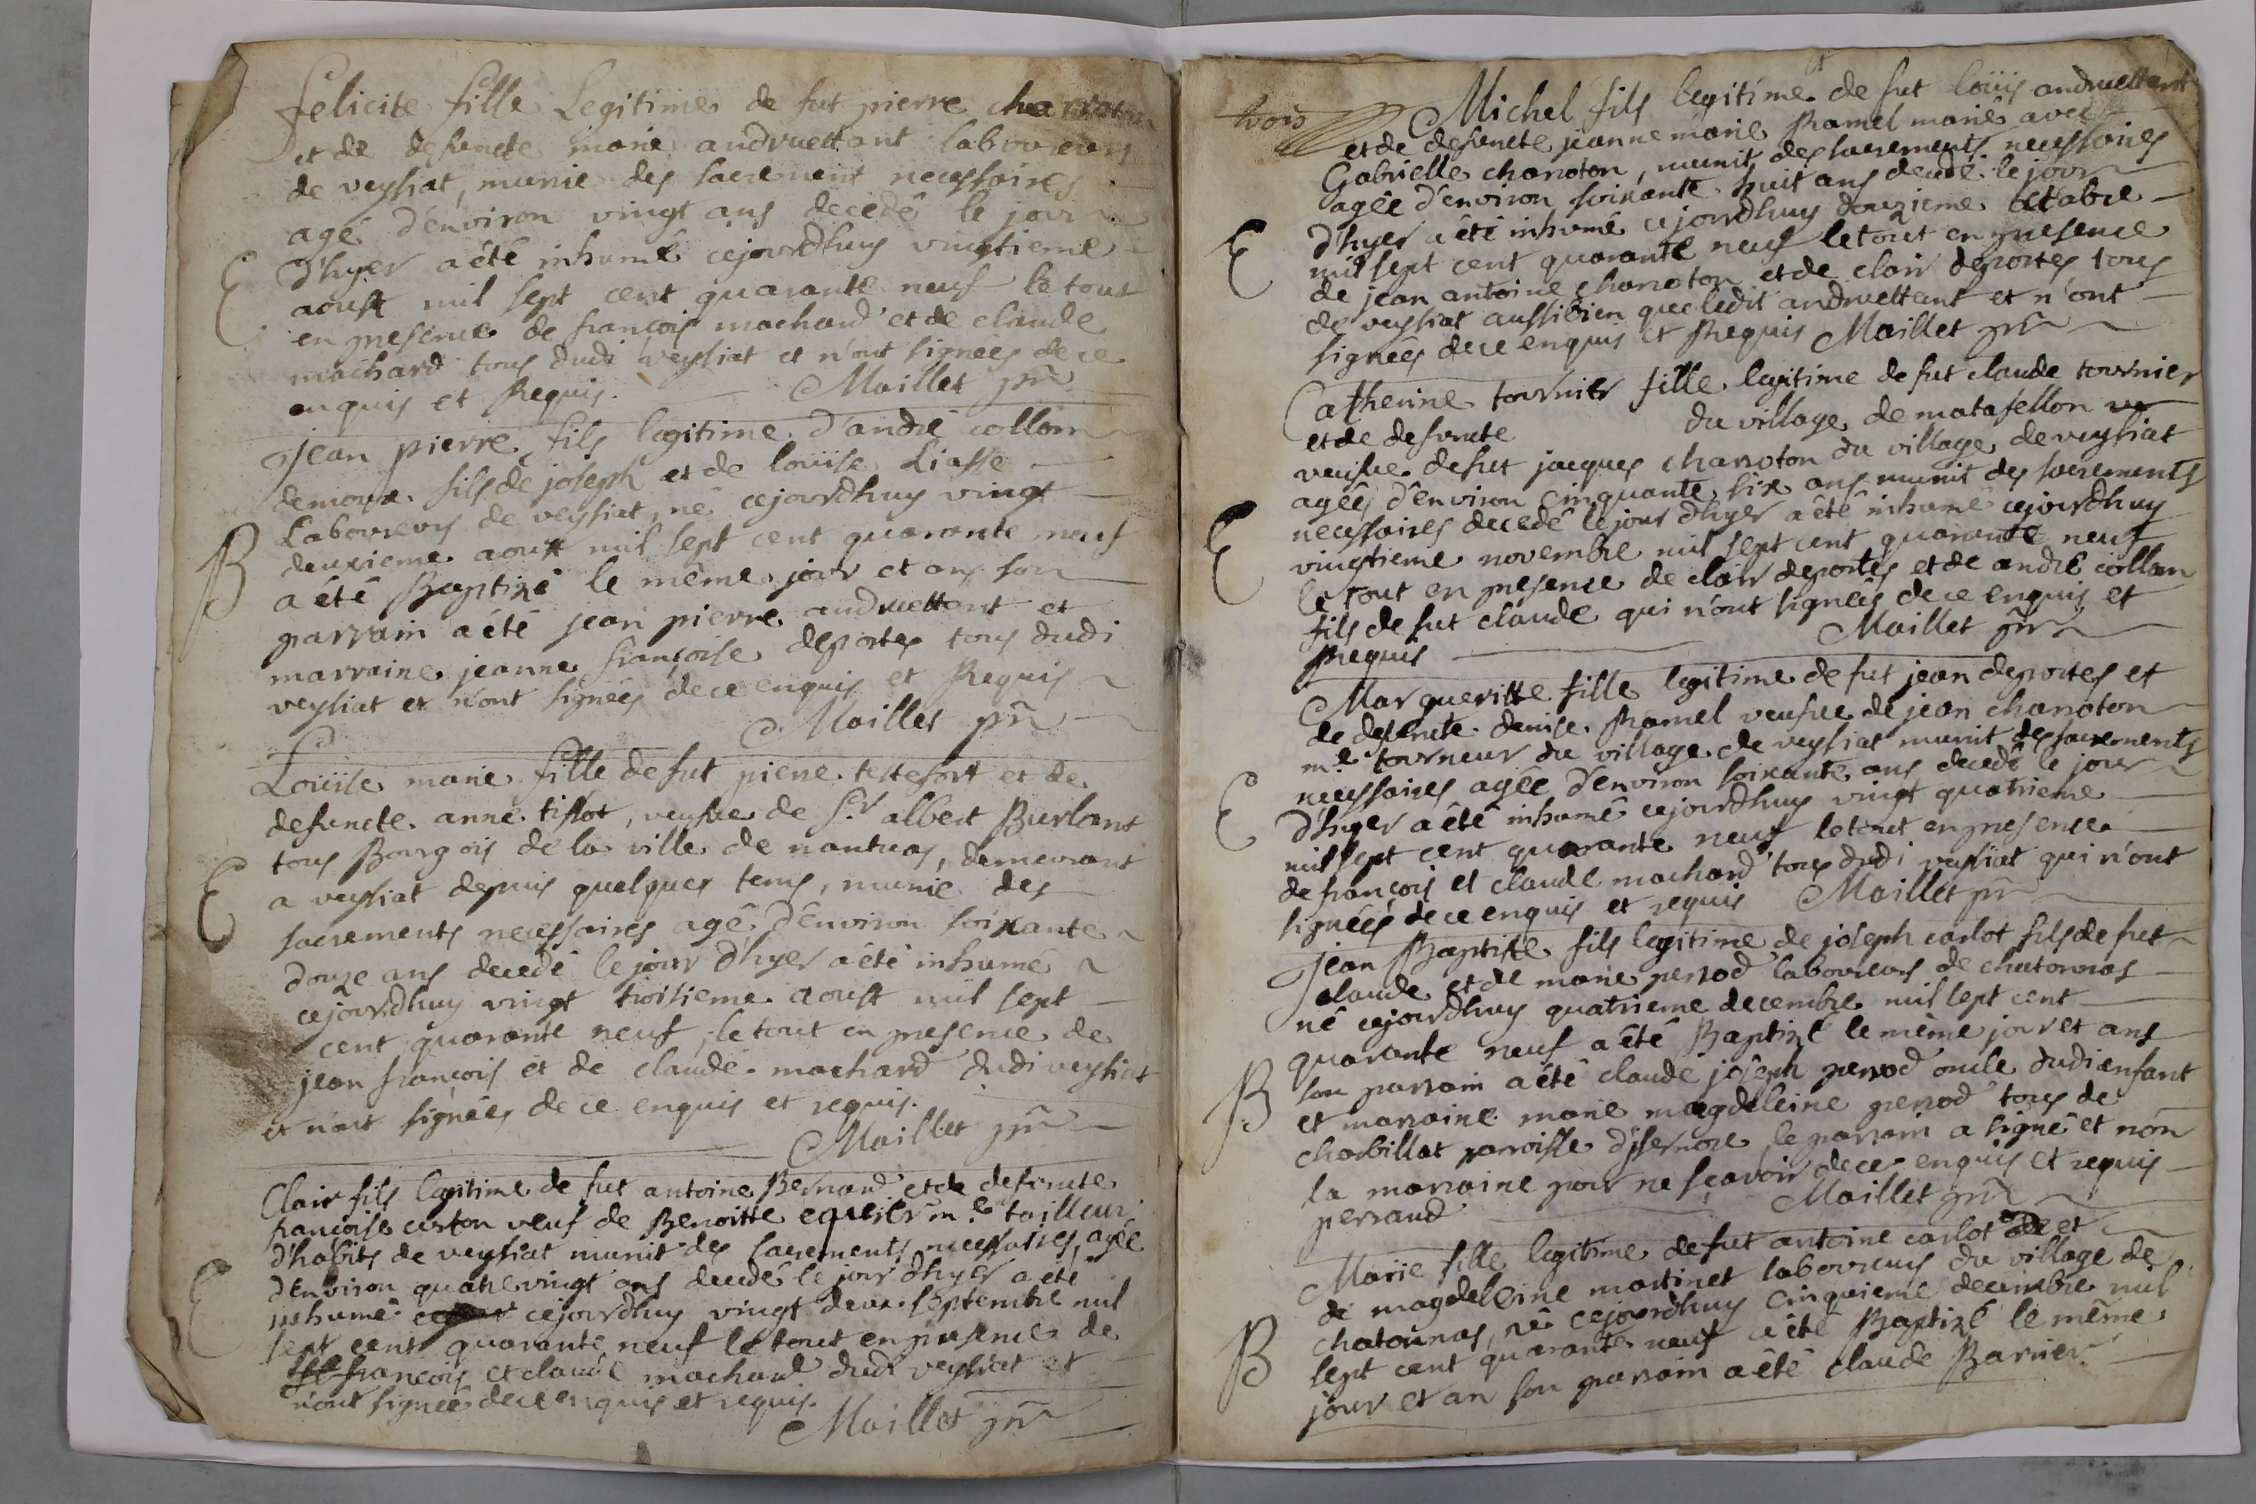 felicite fille Legitime de fut pierre charroton
et de defuncte marie andruettant laboureurs
de veysiat, munie des sacrement necessaires
agé d'environ vingt ans decedé le jour
E d'hyer a été inhumé cejourdhuy vingtieme
aoust mil sept cent quarante neuf le tout
en presence de françois machard et de claude
machard tous dudi veysiat et n'ont signees de ce
enquis et Requis. Maillet
jean pierre fils legitime d'andré collom
demoux fils de joseph et de louise Liasse
Laboureurs de veysiat, né cejourdhuy vingt
B deuxieme aoust mil sept cent quarante neuf
a été Baptizé le même jour et an son
parrain a été jean pierre andruettant et
marraine jeanne françoise deportes tous dudi
veysiat et n'ont signées de ce enquis et Requis
Maillet
Loüise marie fille de fut pierre testefort et de
defuncte anne tissot, veufve de Sr albert Burlant
tous Bourgois de la ville de nantuas, demeurant
E a veysiat depuis quelques tems, munie des
sacrements necessaires agé d'environ soixante
douze ans decedé le jour d'hyer a été inhumé
cejourdhuy vingt troisieme aoust mil sept
cent quarante neuf, le tout en presence de
jean françois et de claude machard dudi veysiat
et n'ont signées de ce enquis et requis.
Maillet
Clair fils legitime de fut antoine Bernard et de defuncte
françoise curton veuf de Benoitte equeir me tailleur
d'habits de veysiat munit des sacrements necessaires, agé
E d'environ quatre vingt ans decedé le jour d'hyer a été
inhumé cejourdhuy vingt deux septembre mil
sept cent quarante neuf le tout en presence de
françois et claude machard dudi veysiat et
n'ont signée de ce enquis et requis.
Maillet
trois Michel fils legitime de fut loüis andruettant
et de defuncte jeanne marie Ramel marié avec
Gabrielle charroton, munit des sacrements necessaires
agée d'environ soixante huit ans decedé le jour
E d'hyer a été inhumé cejourdhuy douzieme octobre
mil sept cent quarante neuf le tout en presence
de jean antoine charroton et de clair deportes tous
de veysiat aussibien que ledit andruettant et n'ont
signées de ce enquis et Requis Maillet
Catherine tournier fille legitime de fut claude tournier
et de defuncte du village de matafellon
veufve de fut jacques charroton du village de veysiat
agée d'environ cinquante six ans munit des sacrements
E necessaires decedé le jour d'hyer a été inhumé cejourdhuy
vingtieme novembre mil sept cent quarante neuf
le tout en presence de clair deportes et de andré collom
fils de fut claude qui n'ont signées de ce enquis et
Requis Maillet
Margueritte fille legitime de fut jean deportes et
de defuncte denise Ramel veufve de jean charroton
me tourneur du village de veysiat munit des sacrements
necessaires agée d'environ soixante ans decedé le jour
E d'hyer a été inhumé cejourdhuy vingt quatrieme
mil sept cent quarante neuf le tout en presence
de françois et claude machard tous dudi veysiat qui n'ont
signées de ce enquis et requis Maillet
jean Baptiste fils legitime de joseph carlot fils de fut
claude et de marie perrod laboureurs de chatonnas
né cejourdhuy quatrieme decembre mil sept cent
quarante neuf a été Baptizé le même jour et ans
B son parrain a été claude joseph perrod oncle dudi enfant
et marraine marie magdeleine perrod tous de
charbillat parroisse d'isernore, le parrain a signé et non
la marraine pour ne sçavoir de ce enquis et requis
perraud Maillet
Marie fille legitime de fut antoine carlot et
de magdeleine martinet laboureurs du village de
chatonnas, né cejourdhuy cinquieme decembre mil
B sept cent quarante neuf a été Baptizé le même
jour et an son parrain a été claude Barrier